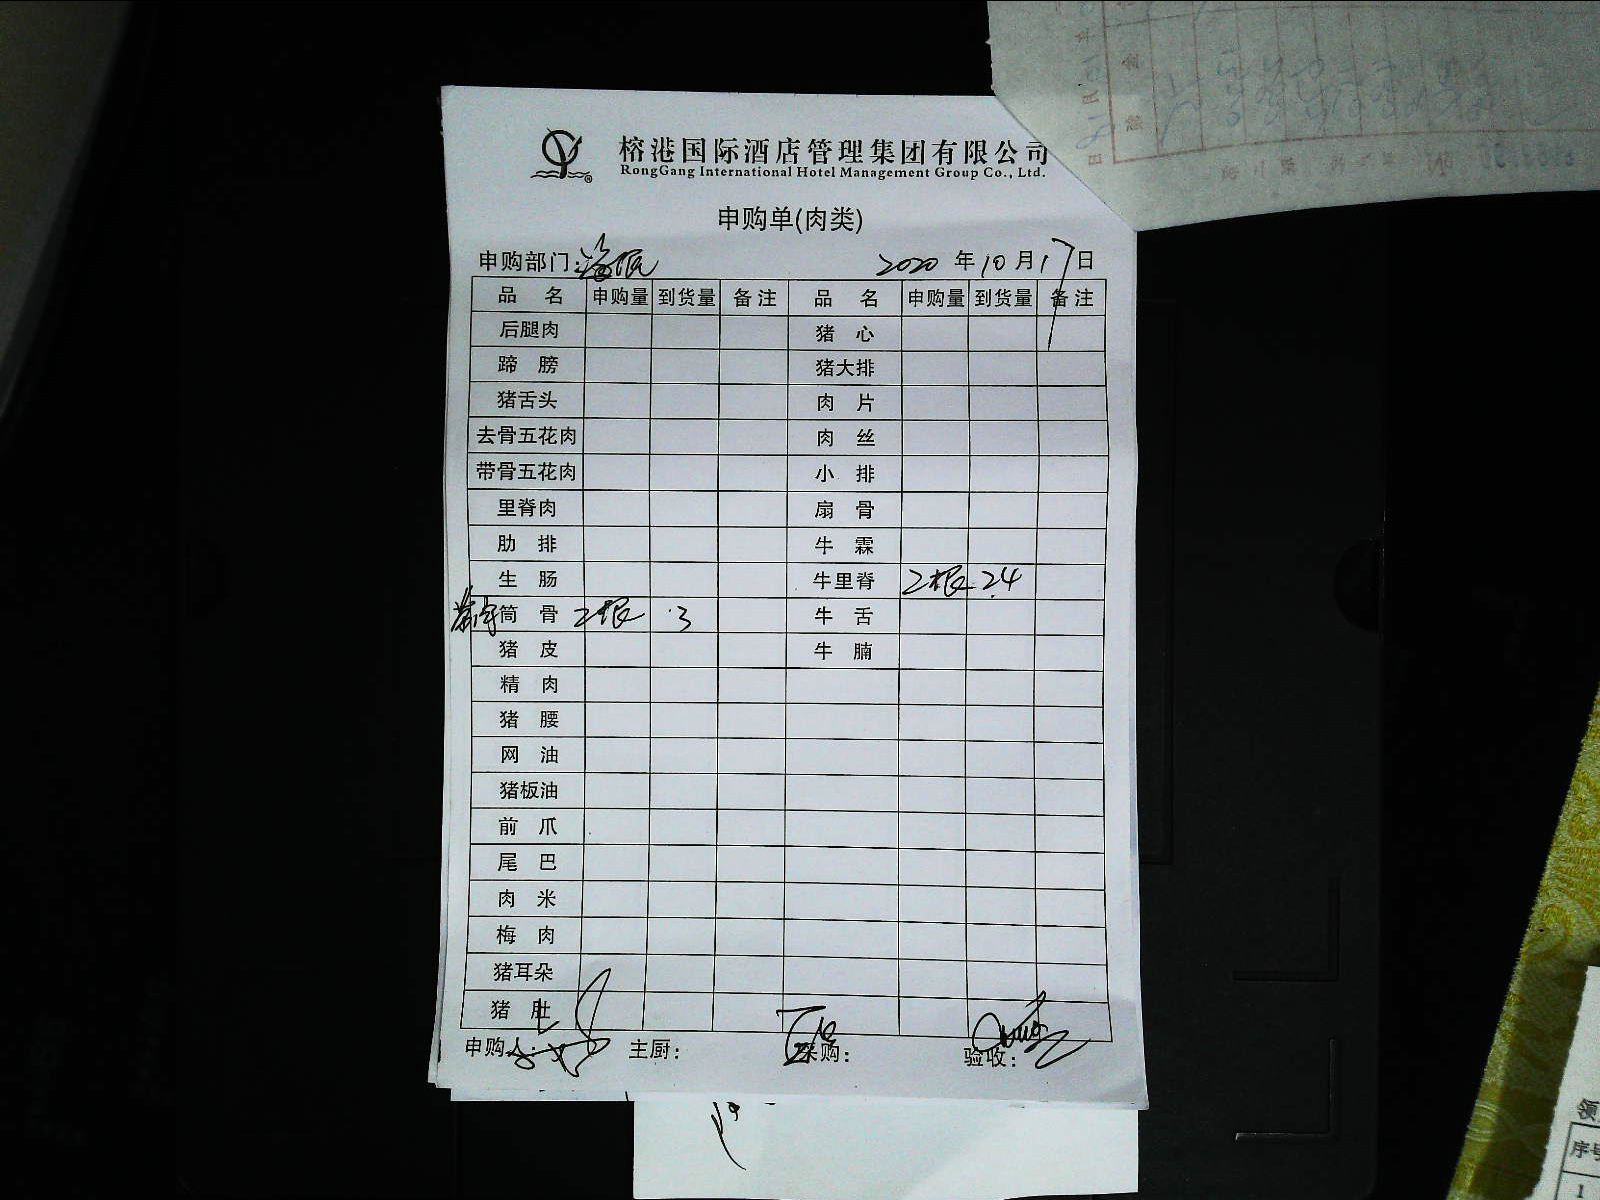 榕港国际酒店管理集团有限公司
RongGang International Hotel Management Group Co., Ltd.
申购单(肉类)
申购部门: 2020 年 10 月 17 日
品 名 申购量 到货量 备注 品 名 申购量 到货量 备注
后腿肉 猪 心
蹄 膀 猪大排
猪舌头 肉 片
去骨五花肉 肉 丝
带骨五花肉 小 排
里脊肉 扇 骨
肋 排 牛 霖
生 肠 牛里脊 2根 2.4
筒 骨 2根 3 牛 舌
猪 皮 牛 腩
精 肉
猪 腰
网 油
猪板油
前 爪
尾 巴
肉 米
梅 肉
猪耳朵
猪 肚
申购人: 主厨: 采购: 验收:
领
序号
1